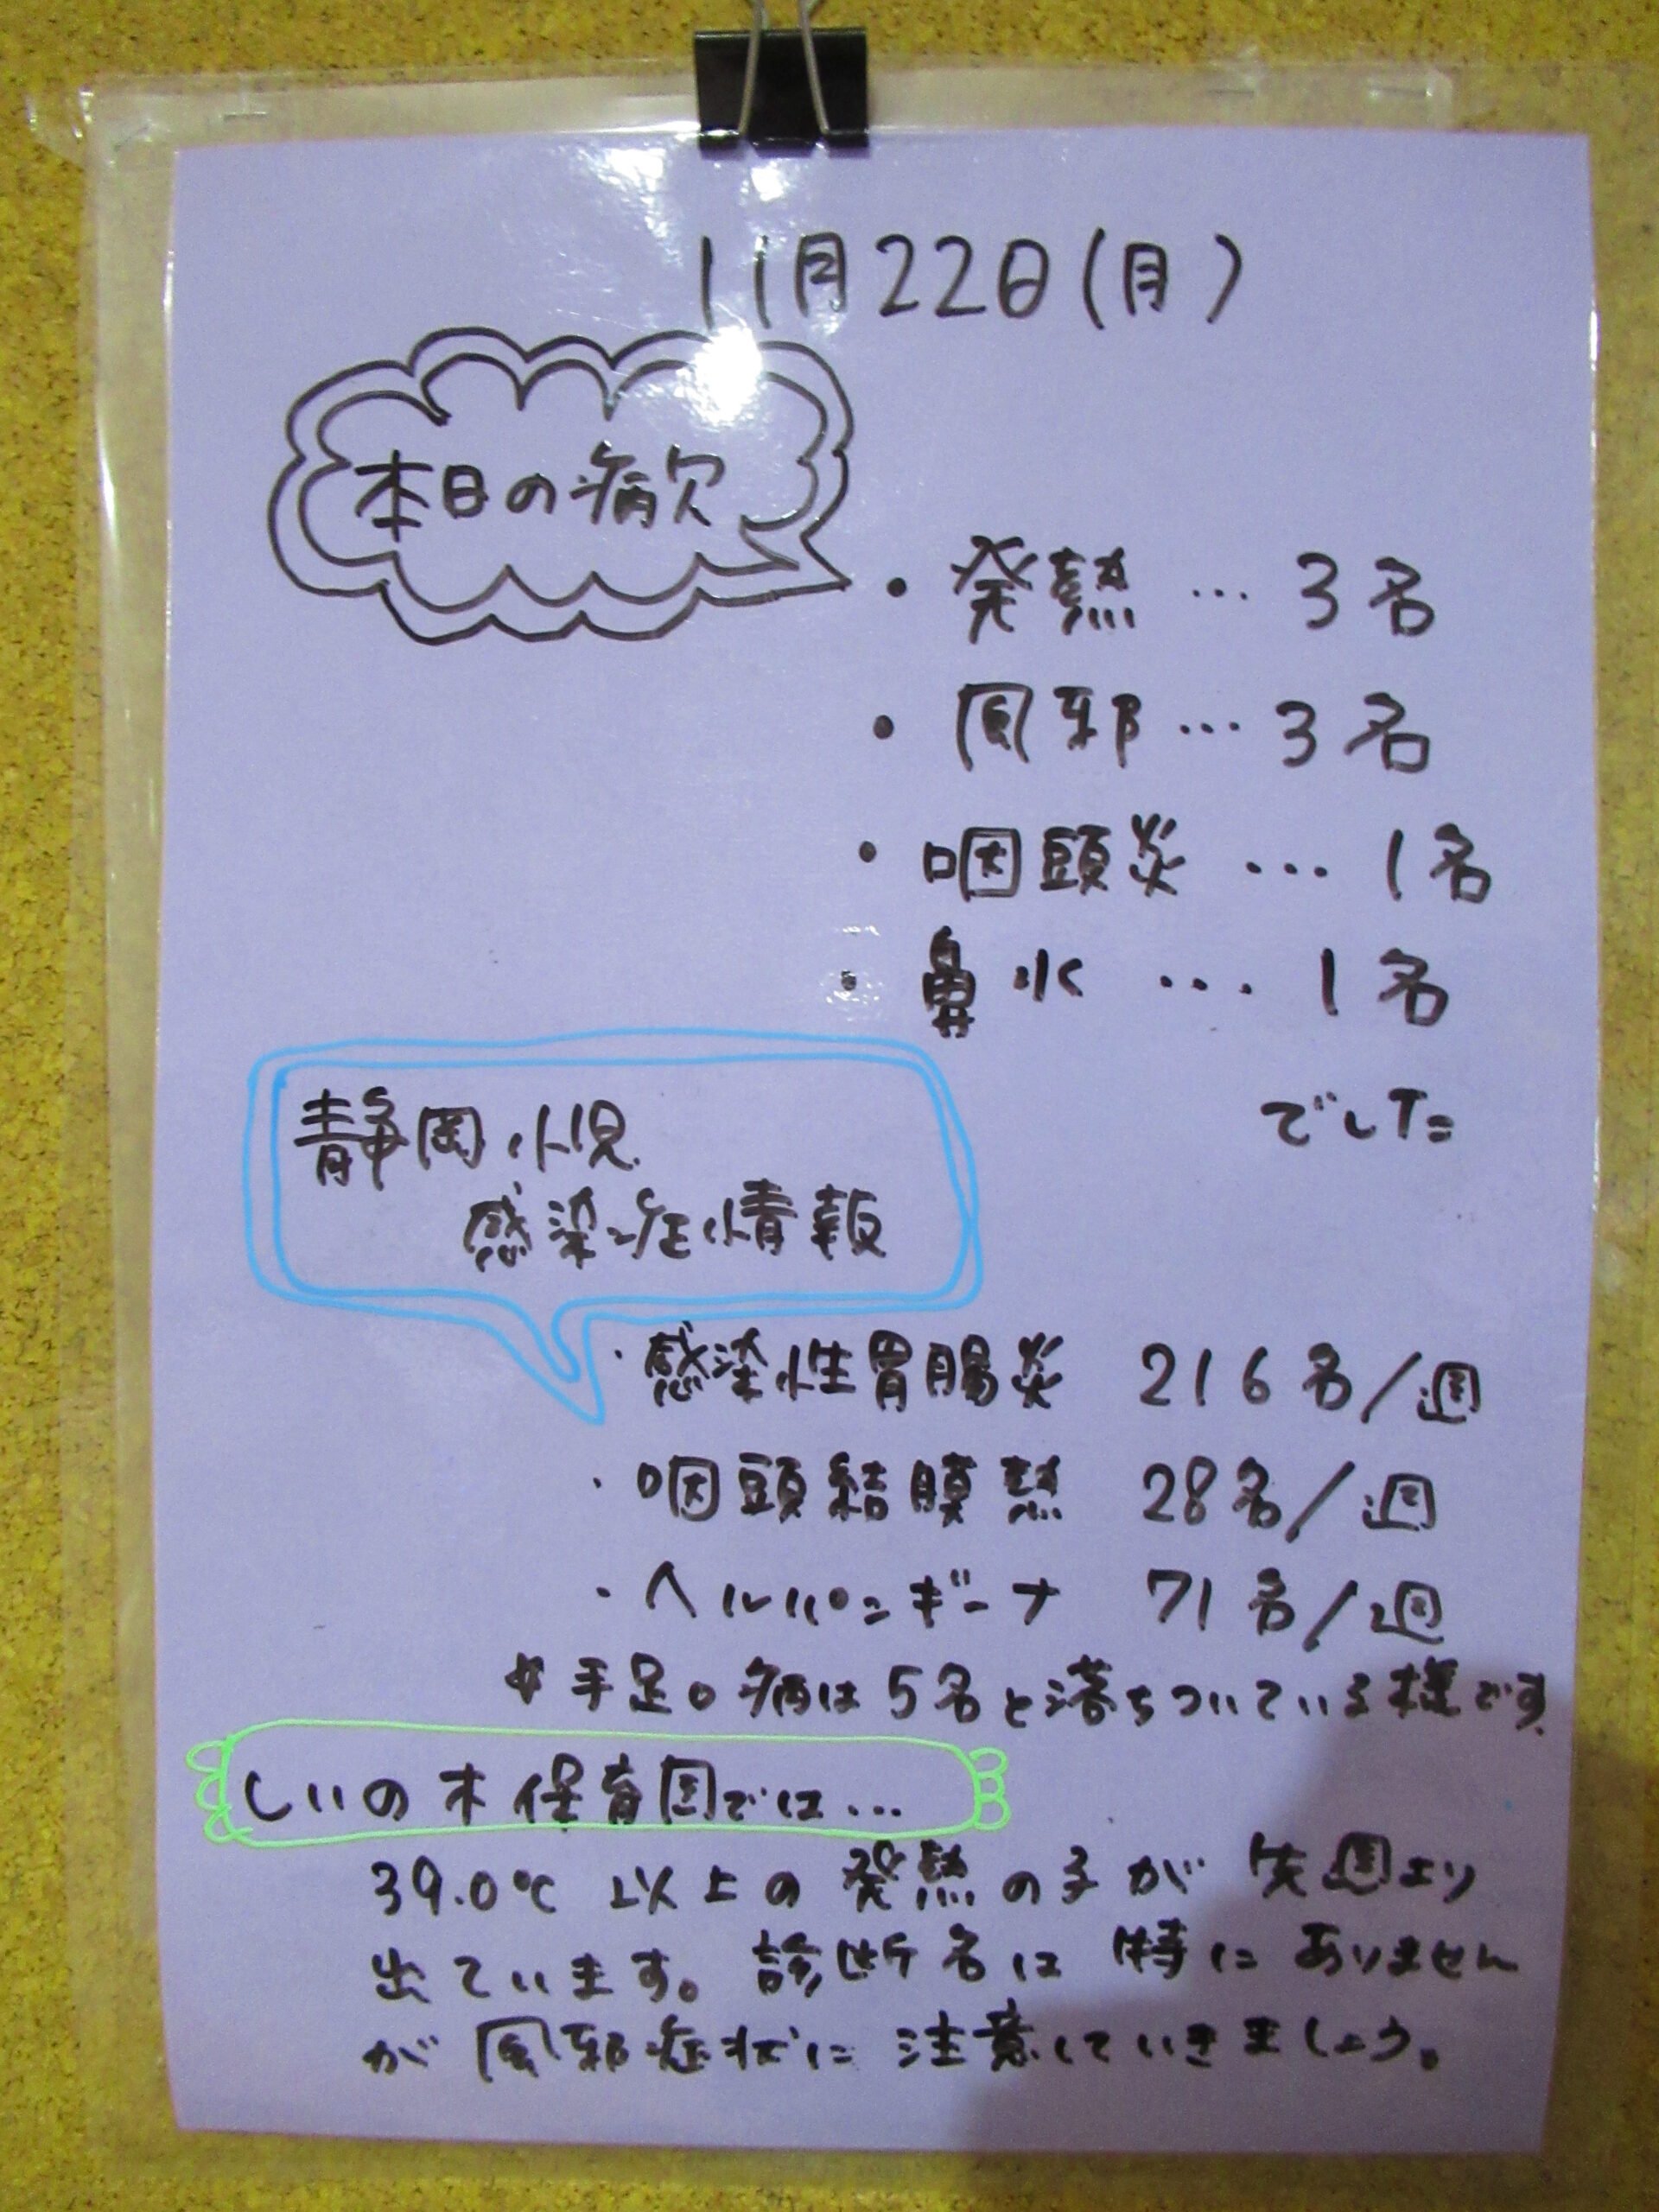 11月22日(月)
本日の病欠
・発熱…3名
・風邪…3名
・咽頭炎…1名
・鼻水…1名
でした
静岡小児
感染症情報
・感染性胃腸炎 216名/週
・咽頭結膜熱 28名/週
・ヘルパンギーナ 71名/週
☆手足口病は5名と落ちついている様です
しいの木保育園では…
39.0℃以上の発熱の子が先週より
出ています。診断名は特にありません
が風邪症状に注意していきましょう。